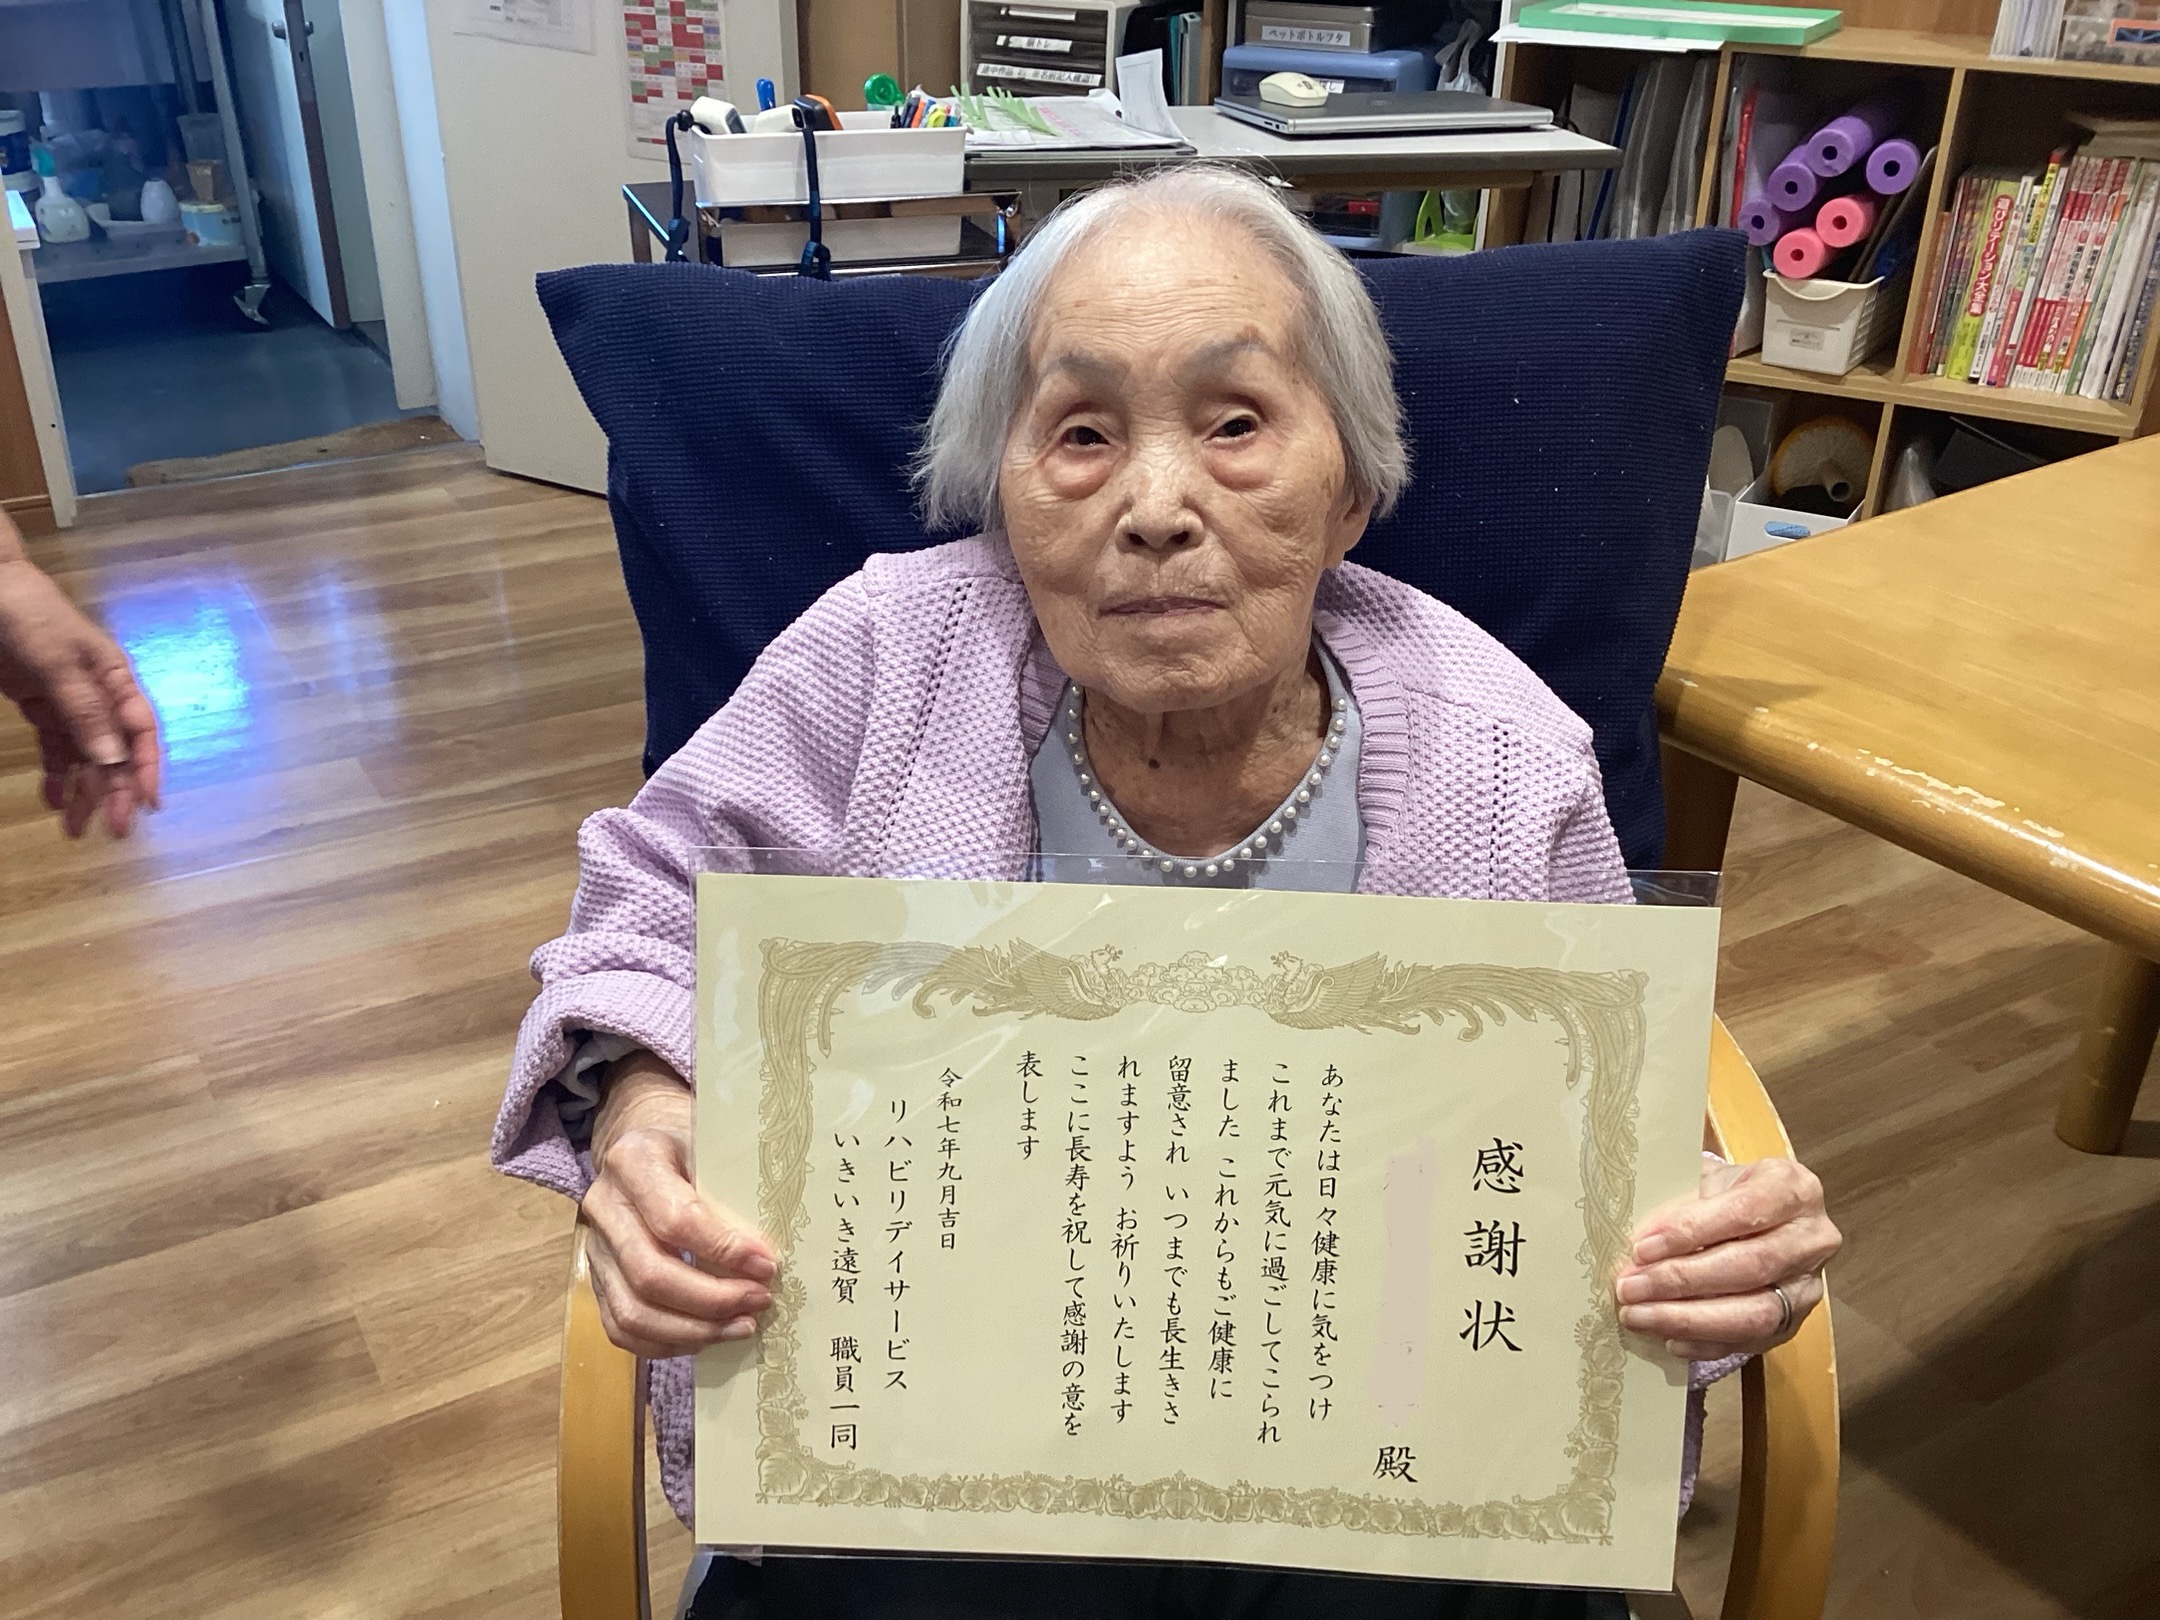 感謝状
殿
あなたは日々健康に気をつけ
これまで元気に過ごしてこられ
ました これからもご健康に
留意され いつまでも長生きさ
れますよう お祈りいたします
ここに長寿を祝して感謝の意を
表します
令和七年九月吉日
リハビリデイサービス
いきいき遠賀 職員一同
ペットボトルフタ
脳トレ
途中作品
※名前記入確認!
遊びリテーション大全集